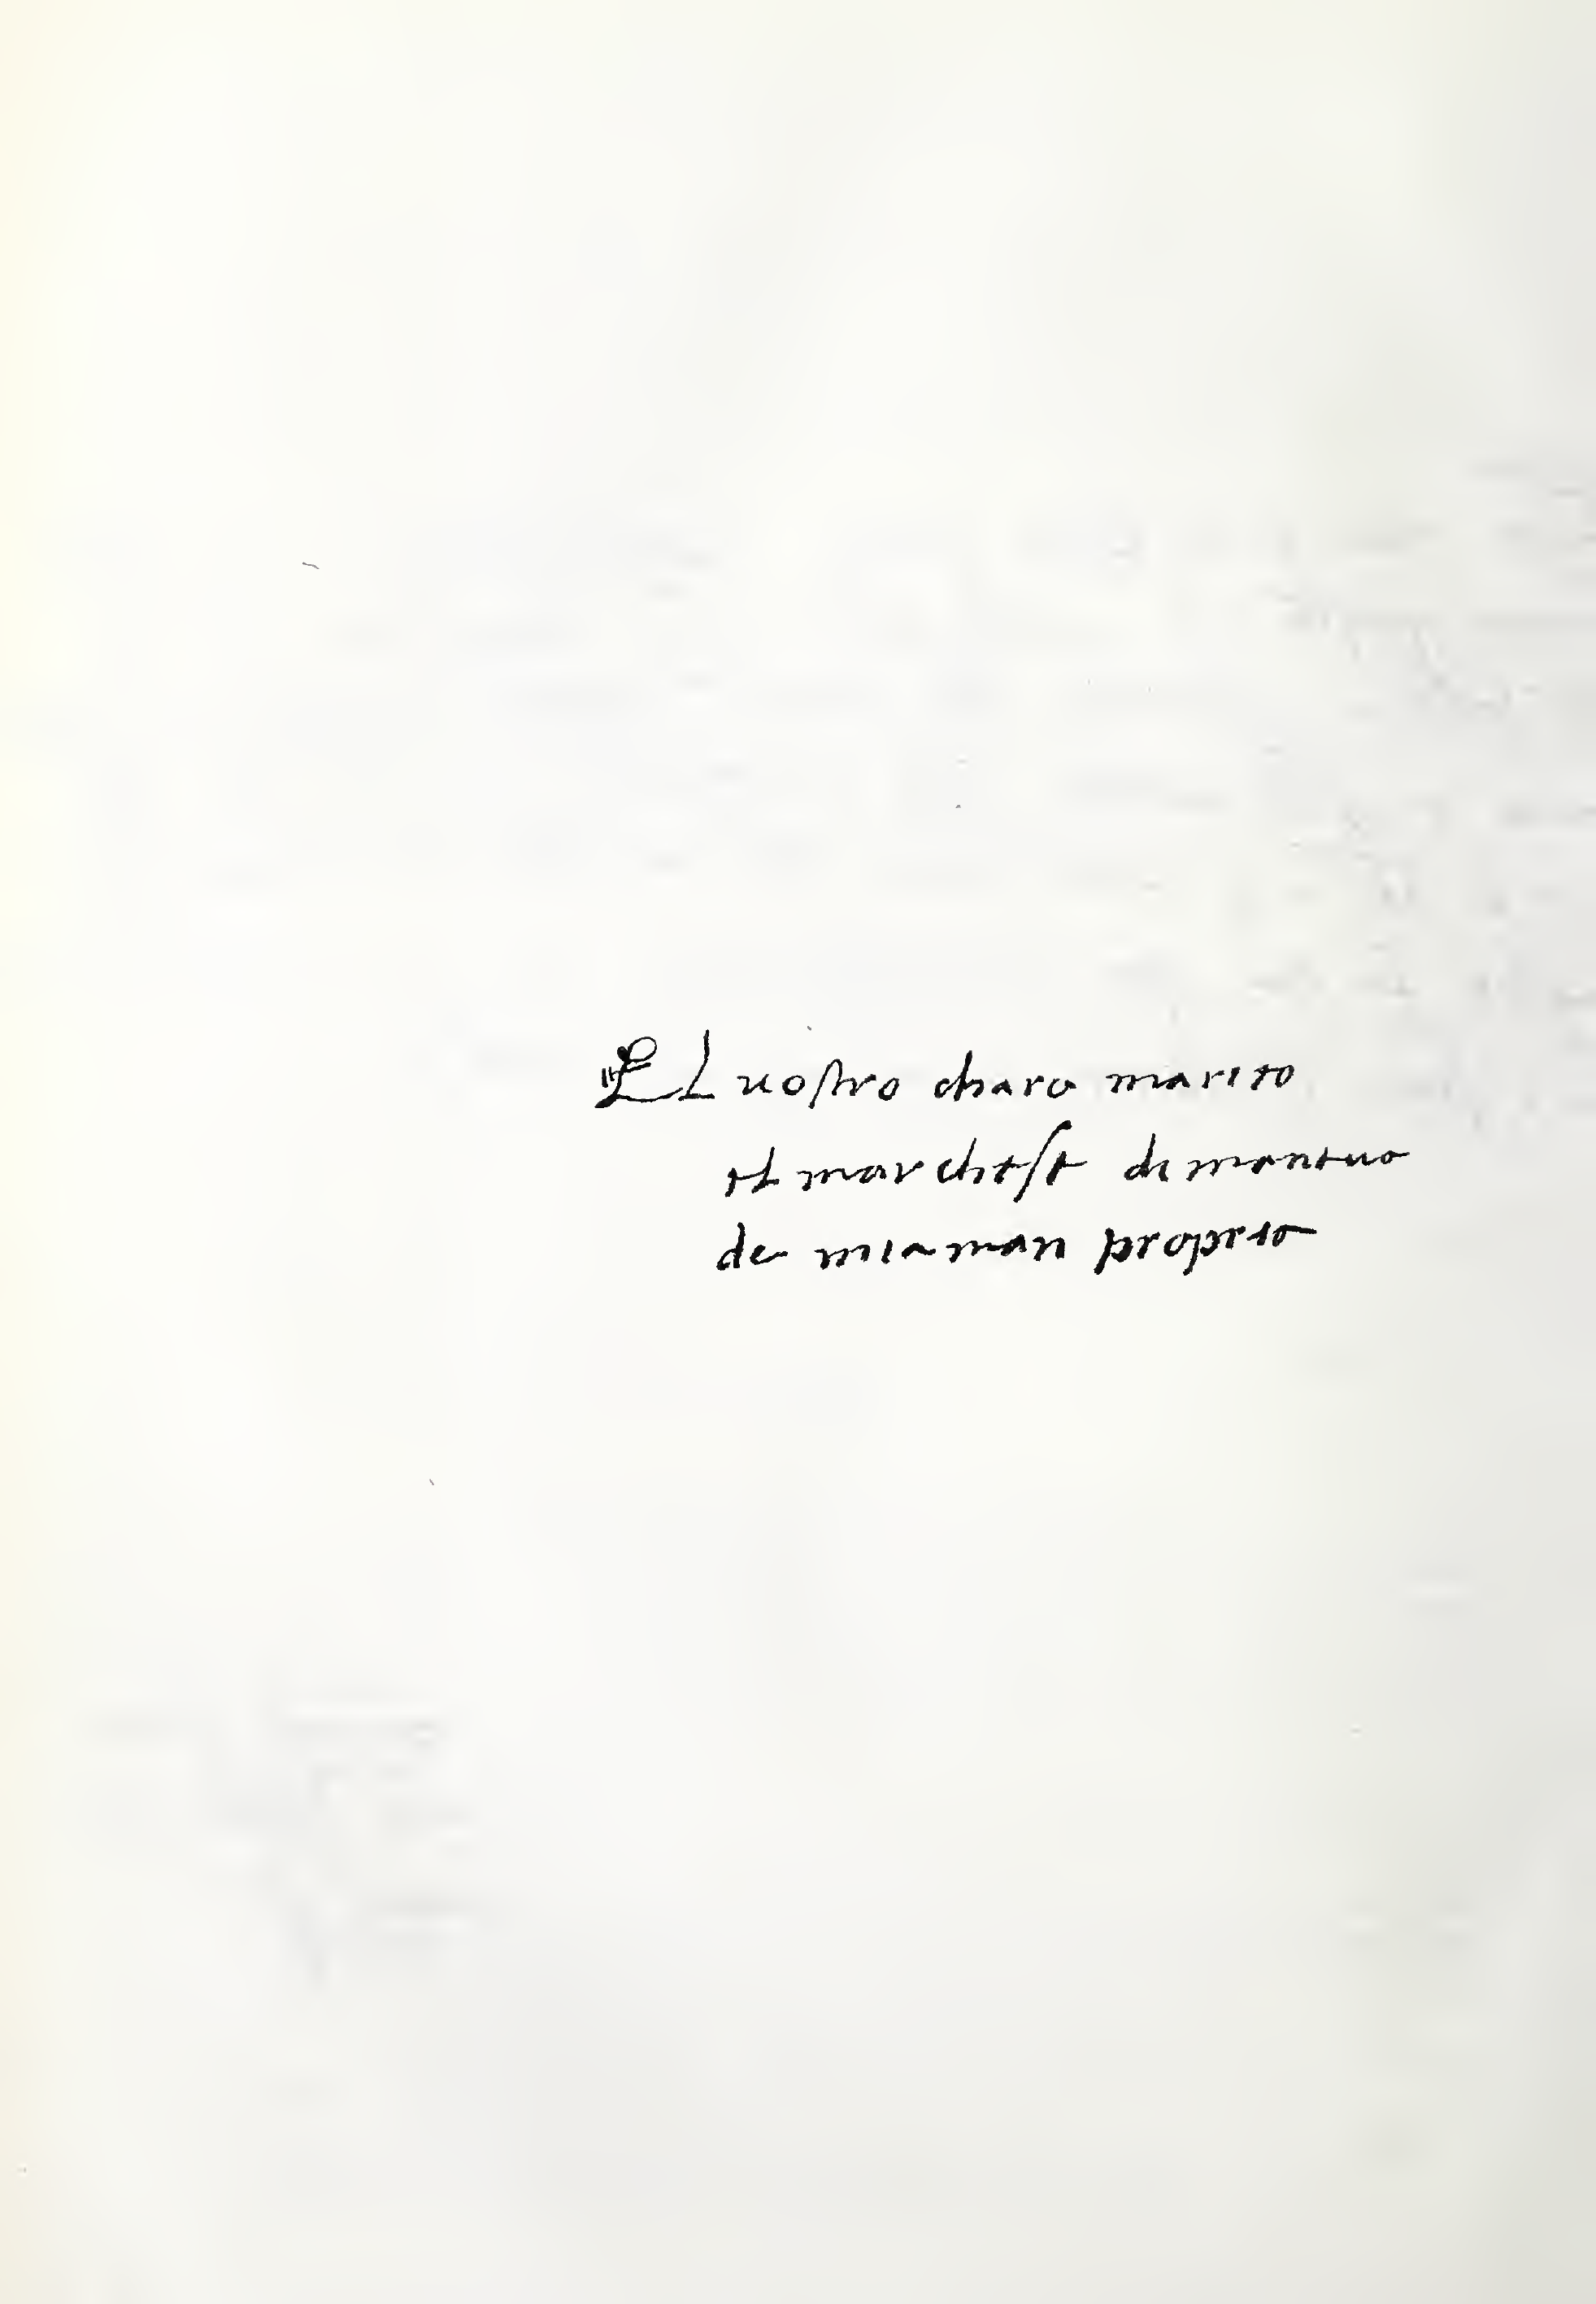 El uostro charo marito
el marchese di mantua
de mia man propria